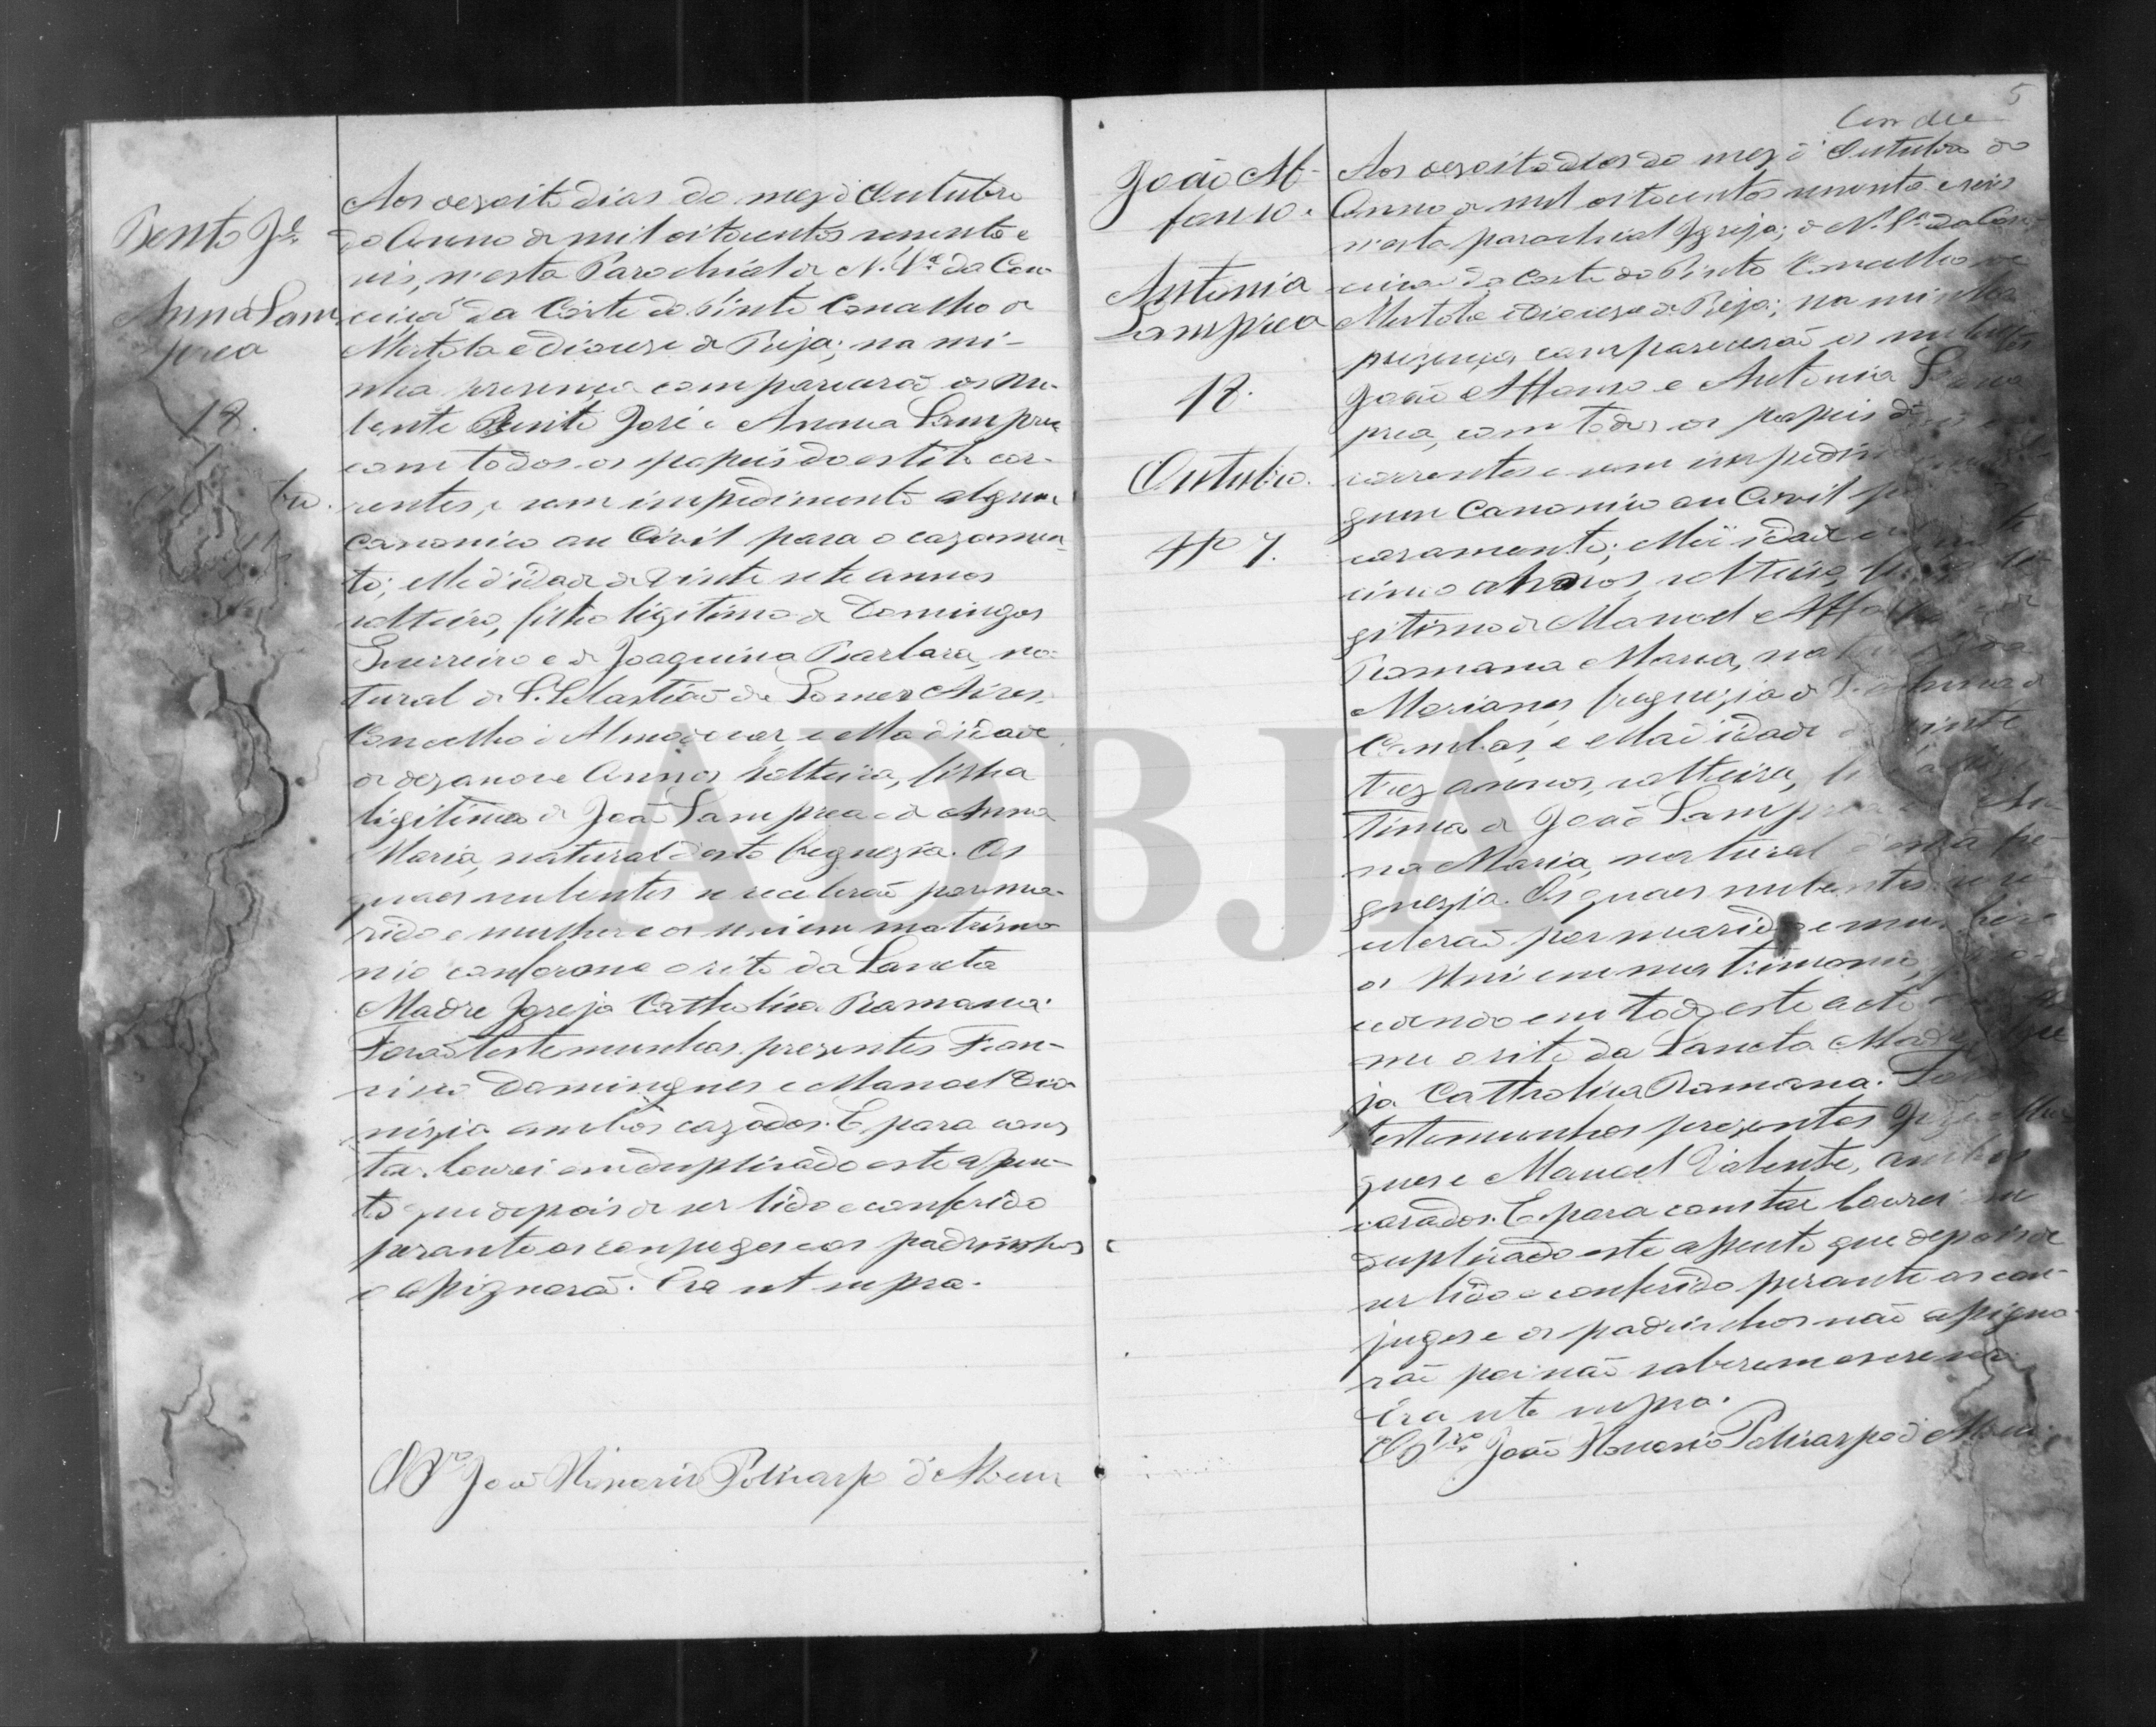 Bento Jé
Anna Sam
prea
18.
bro.
Aos dezoito dias do mez d'Outubro
do Anno de mil oitocentos noventa e
seis, n'esta Parochial de N. Sra. da Con-
ceicã da Corte do Pinto Concelho de
Mertola e Diocese de Beja; na mi-
nha presença comparecerão os nu-
bente Bento José e Anna Samprea
com todos os papeis do estilo cor-
rentes, e sem impedimento algum
canonico ou Civil para o cazamen-
to; elle d'idade de vinte sete annos
solteiro, filho ligitimo de Domingos
Guerreiro e de Joaquina Barbara, na-
tural de S. Sebastião de Gomes Aires
Concelho d'Almodovar, e ella d'idade
de dezanove Annos solteira, filha
ligitima de João Samprea e de Anna
Maria, natural d'esta freguezia. Os
quaes nubentes se receberão por ma-
rido e mulher e os uni em matrimo
nio conforme o rito da Sancta
Madre Igreja Catholica Romana.
Forão testemunhas prezentes Fran-
cisco Domingues e Manoel Dio-
nizio ambos cazados. E para cons
tar lavrei em duplicado este assen-
to que depois de ser lido e conferido
perante os conjuges e os padrinhos
e assignarã. Era ut supra.
O Pro João Honorio Policarpo d'Abreu
5
João Af-
fonso.
Antonia
Samprea
18.
Outubro.
Nº 7.
Aos dezoito dias do mez d'Outubro do
Anno de mil oitocentos noventa e seis
n'esta parochial Igreja, de N. Sra. da Con-
ceicão da Corte do Pinto Concelho de
Mertola e Diocese de Beja; na minha
prezença comparecerão os nubentes
João Affonso e Antonia Sam
prea, com todos os papeis d
correntes e sem impedi
gum Canonico ou Civil p
casamento; elle d'idade
cinco annos, solteiro, fi
gitimo de Manoel Affonso
Romana Maria, natural da
Marianes freguezia d
Combas, e ella d'idade de vinte
trez annos, solteira, fi
tima de João Samprea An-
na Maria, natural d'esta fre
guezia. Os quaes nubentes se re-
ceberão por marido e mulher e
os Uni em matrimonio, pro
cedendo em todo este acto
me o rito da Sancta Madre Igre
ja Catholica Romana. Fo
testemunhas prezentes
gues e Manoel Valente, ambos
casados. E para constar lavrei em
duplicado este assento que depois de
ser lido e conferido perante os con-
juges e os padrinhos não assigna-
rão por não saberem escrever.
Era ut supra.
O Pro João Honorio Policarpo d'Abreu
ADBJA